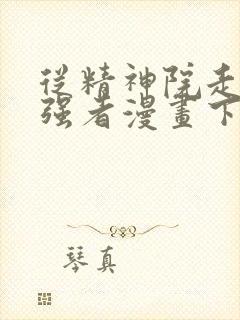 從精神院走
強者漫畫下
琴真